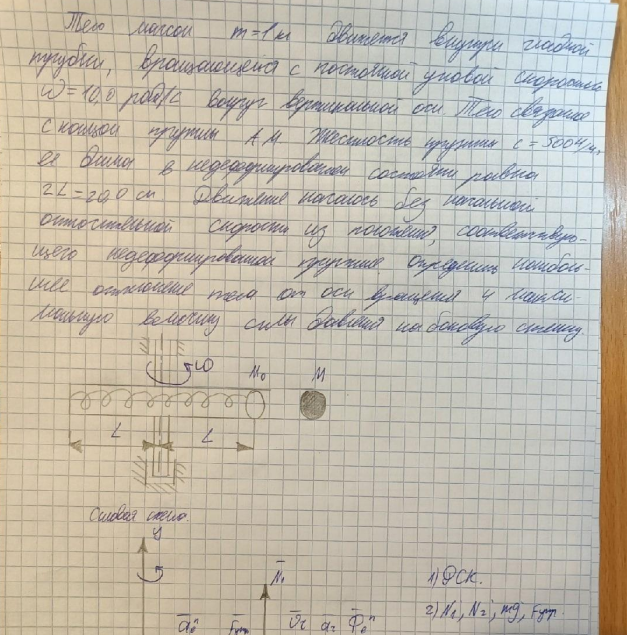 Тело массой m=1 кг движется внутри гладкой
трубки, вращающейся с постоянной угловой скоростью
ω=10,0 рад/с вокруг вертикальной оси. Тело связано
с концом пружины А.М. Жесткость пружины c=500H/м,
ее длина в недеформированном состоянии равна
2L=20,0 см. Движение началось без начальной
относительной скорости из положения, соответствую-
щего недеформированной пружине. Определить наиболь-
шее отклонение тела от оси вращения и макси-
мальную величину силы давления на боковую стенку
ω
M₀ M
L L
Силовая схема.
y
N̄₁
1) ДСК.
2) N₁, N₂, mg, Fупр.
Fупр